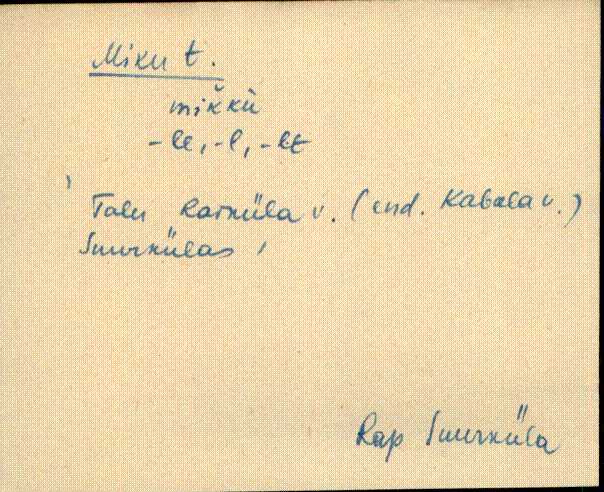 Miku t.
mik̆kù
-le, -l, -lt
' Talu Raiküla v. (end. Kabala v.)
Suurkülas '
Rap Suurküla